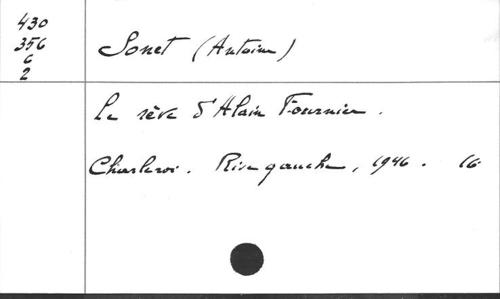 430
356
6
2
Sonet (Antoine)
Le rêve d'Alain Fournier.
Charleroi. Rive gauche, 1946. 16°